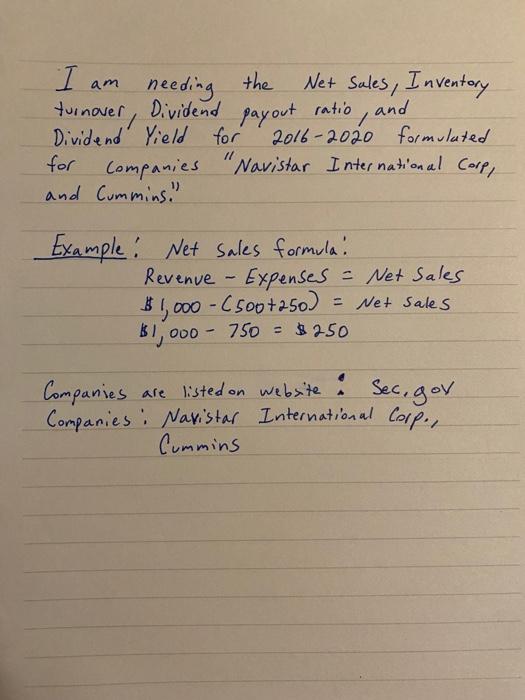 I am needing the Net Sales, Inventory
turnover, Dividend payout ratio, and
Dividend Yield for 2016-2020 formulated
for companies "Navistar International Corp,
and Cummins."
Example: Net sales formula:
Revenue - Expenses = Net Sales
$1,000 - (500+250) = Net sales
$1,000 - 750 = $250
Companies are listed on website: Sec.gov
Companies: Navistar International Corp.,
Cummins